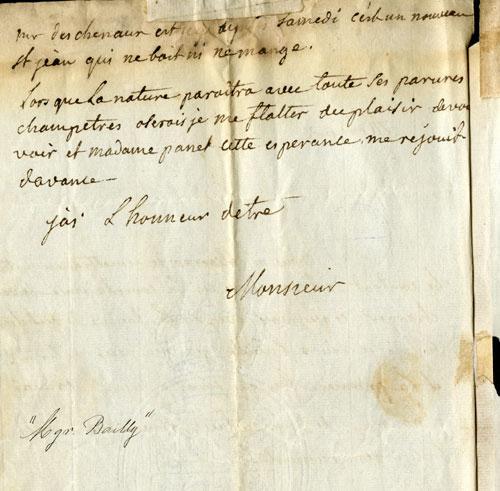 mr deschenaux est ici depuis samedi c'est un nouveau
St jean qui ne boit ni ne mange.
Lorsque La nature paraîtra avec toute Ses parures
champetres oserais je me flatter du plaisir de vous
voir et madame panet cette esperance me rejouit
davance —
jai L honneur detre
Monsieur
"Mgr. Bailly"